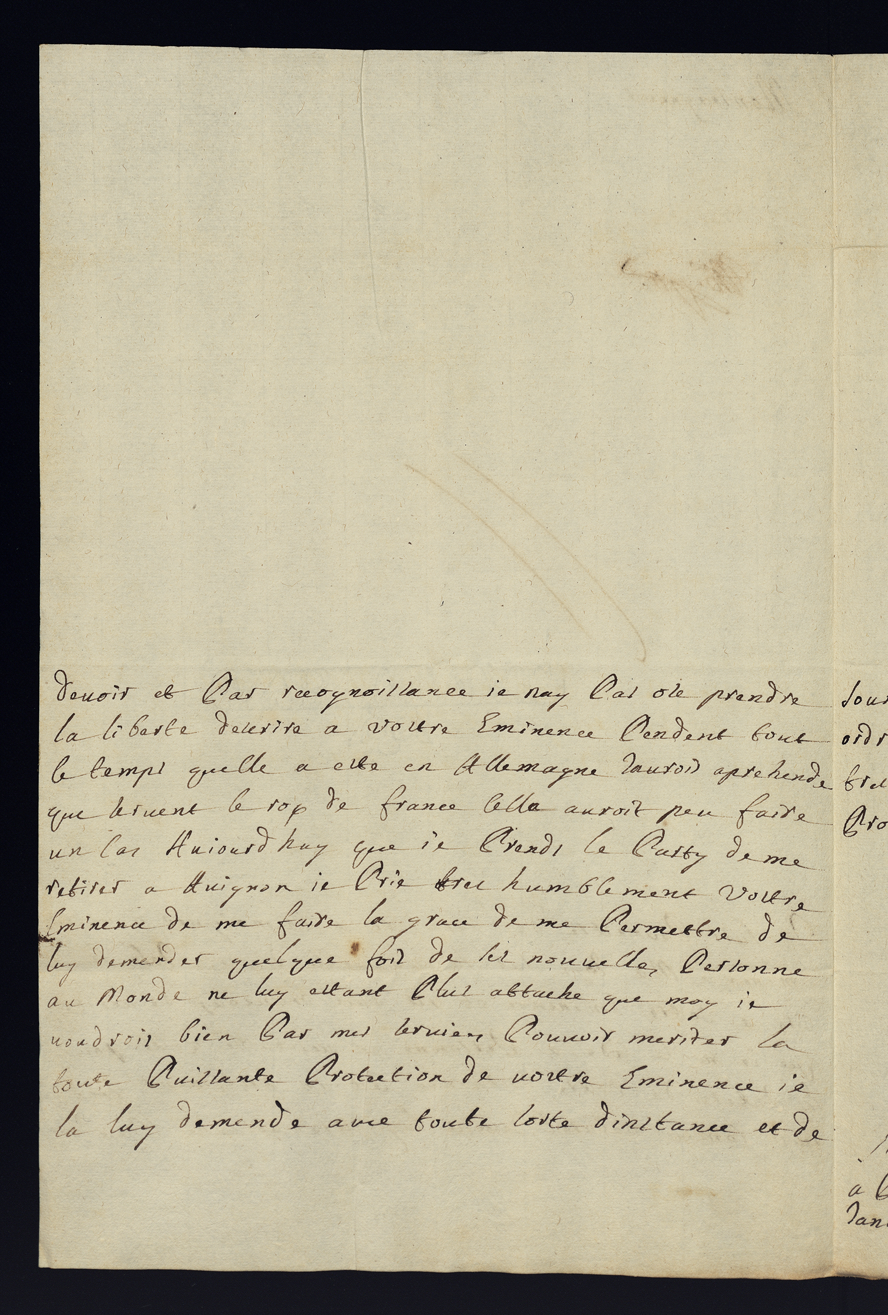 deuoir et Par recognoissance ie nay Pas ose prendre
la liberte descrire a vostre Eminence Pendent tout
le temps quelle a este en Allemagne Jaurois aprehende
que seruent le roy de france cella auroit peu faire
un cas Auiourdhuy que ie Prends le Party de me
retirer a Auignon ie Prie tres humblement Vostre
Eminence de me faire la grace de me Permettre de
luy demender quelque fois de ses nouuelles Personne
au Monde ne luy estant Plus attache que moy ie
uoudrois bien Par mes seruices Pouuoir meriter la
toute Puissante Protection de uostre Eminence ie
la luy demende auec toute sorte dinstance et de
ordr
tres
Pro
a